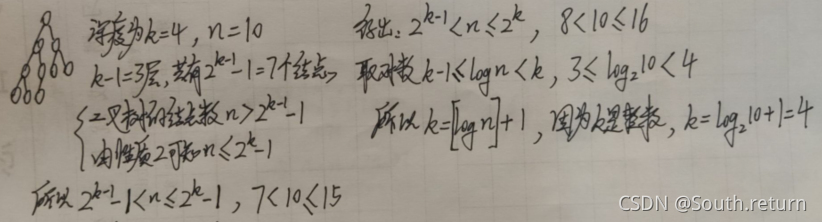 深度为k=4，n=10
k-1=3层，共有2^{k-1}-1=7个结点，
二叉树的结点数n>2^{k-1}-1
由性质2可知n≤2^k-1
所以 2^{k-1}-1<n≤2^k-1，7<10≤15
存出：2^{k-1}<n≤2^k，8<10≤16
取对数 k-1≤logn<k，3≤log₂10<4
所以 k=[logn]+1，因为k是整数，k=log₂10+1=4
CSDN @South.return